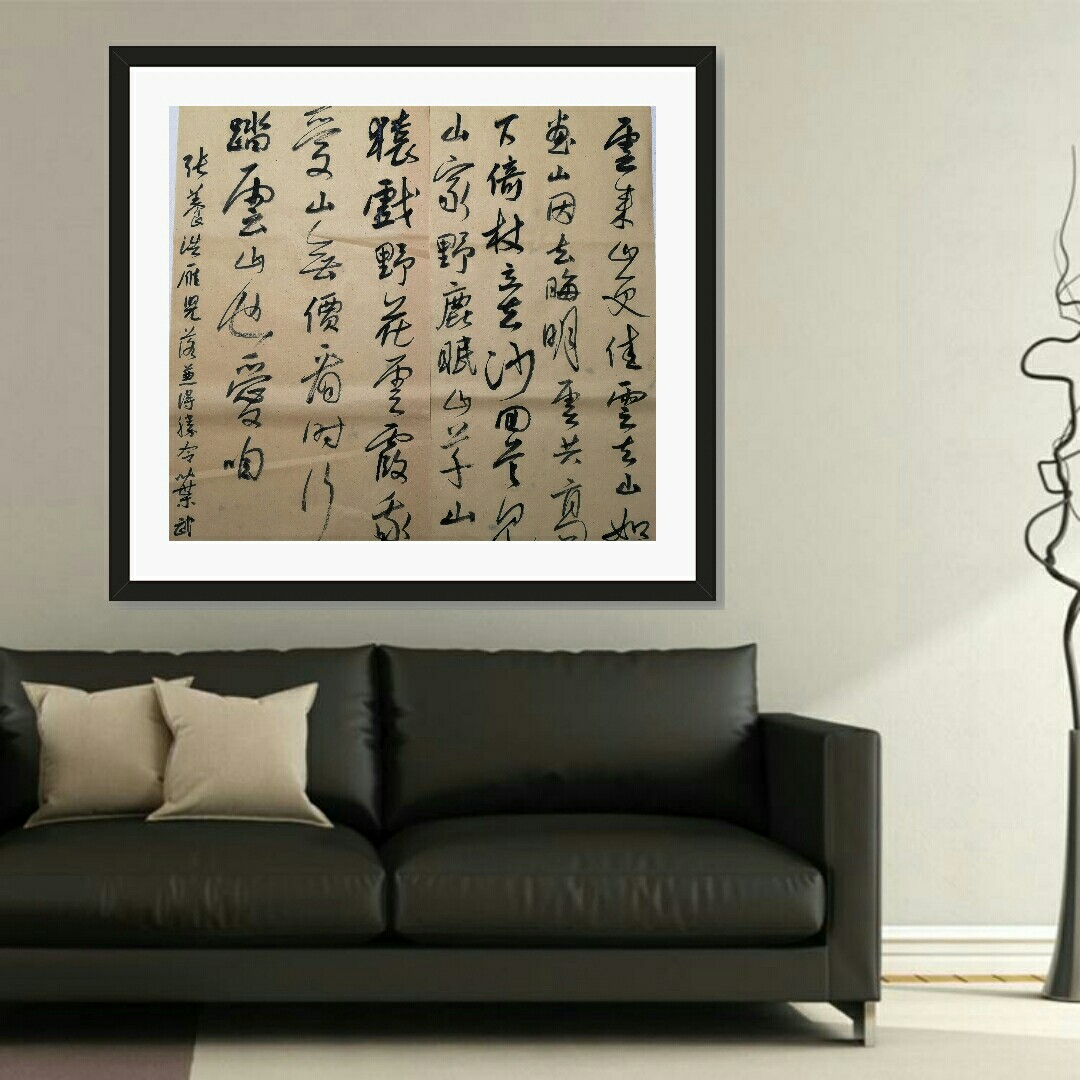 雲來山更佳雲去山如
畫山因云晦明雲共高
下倚杖立云沙回首見
山家野鹿眠山草山
猿戲野花雲霞我
愛山無價看时行
踏雲山也愛咱
张養浩雁兒落兼得勝令葉武